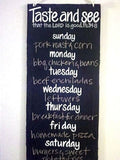 Taste and see
that the LORD is good
sunday
pork roast, corn
monday
bbq chicken, beans
tuesday
beef enchiladas
wednesday
leftovers
thursday
breakfast for dinner
friday
homemade pizza
saturday
burgers, sweet